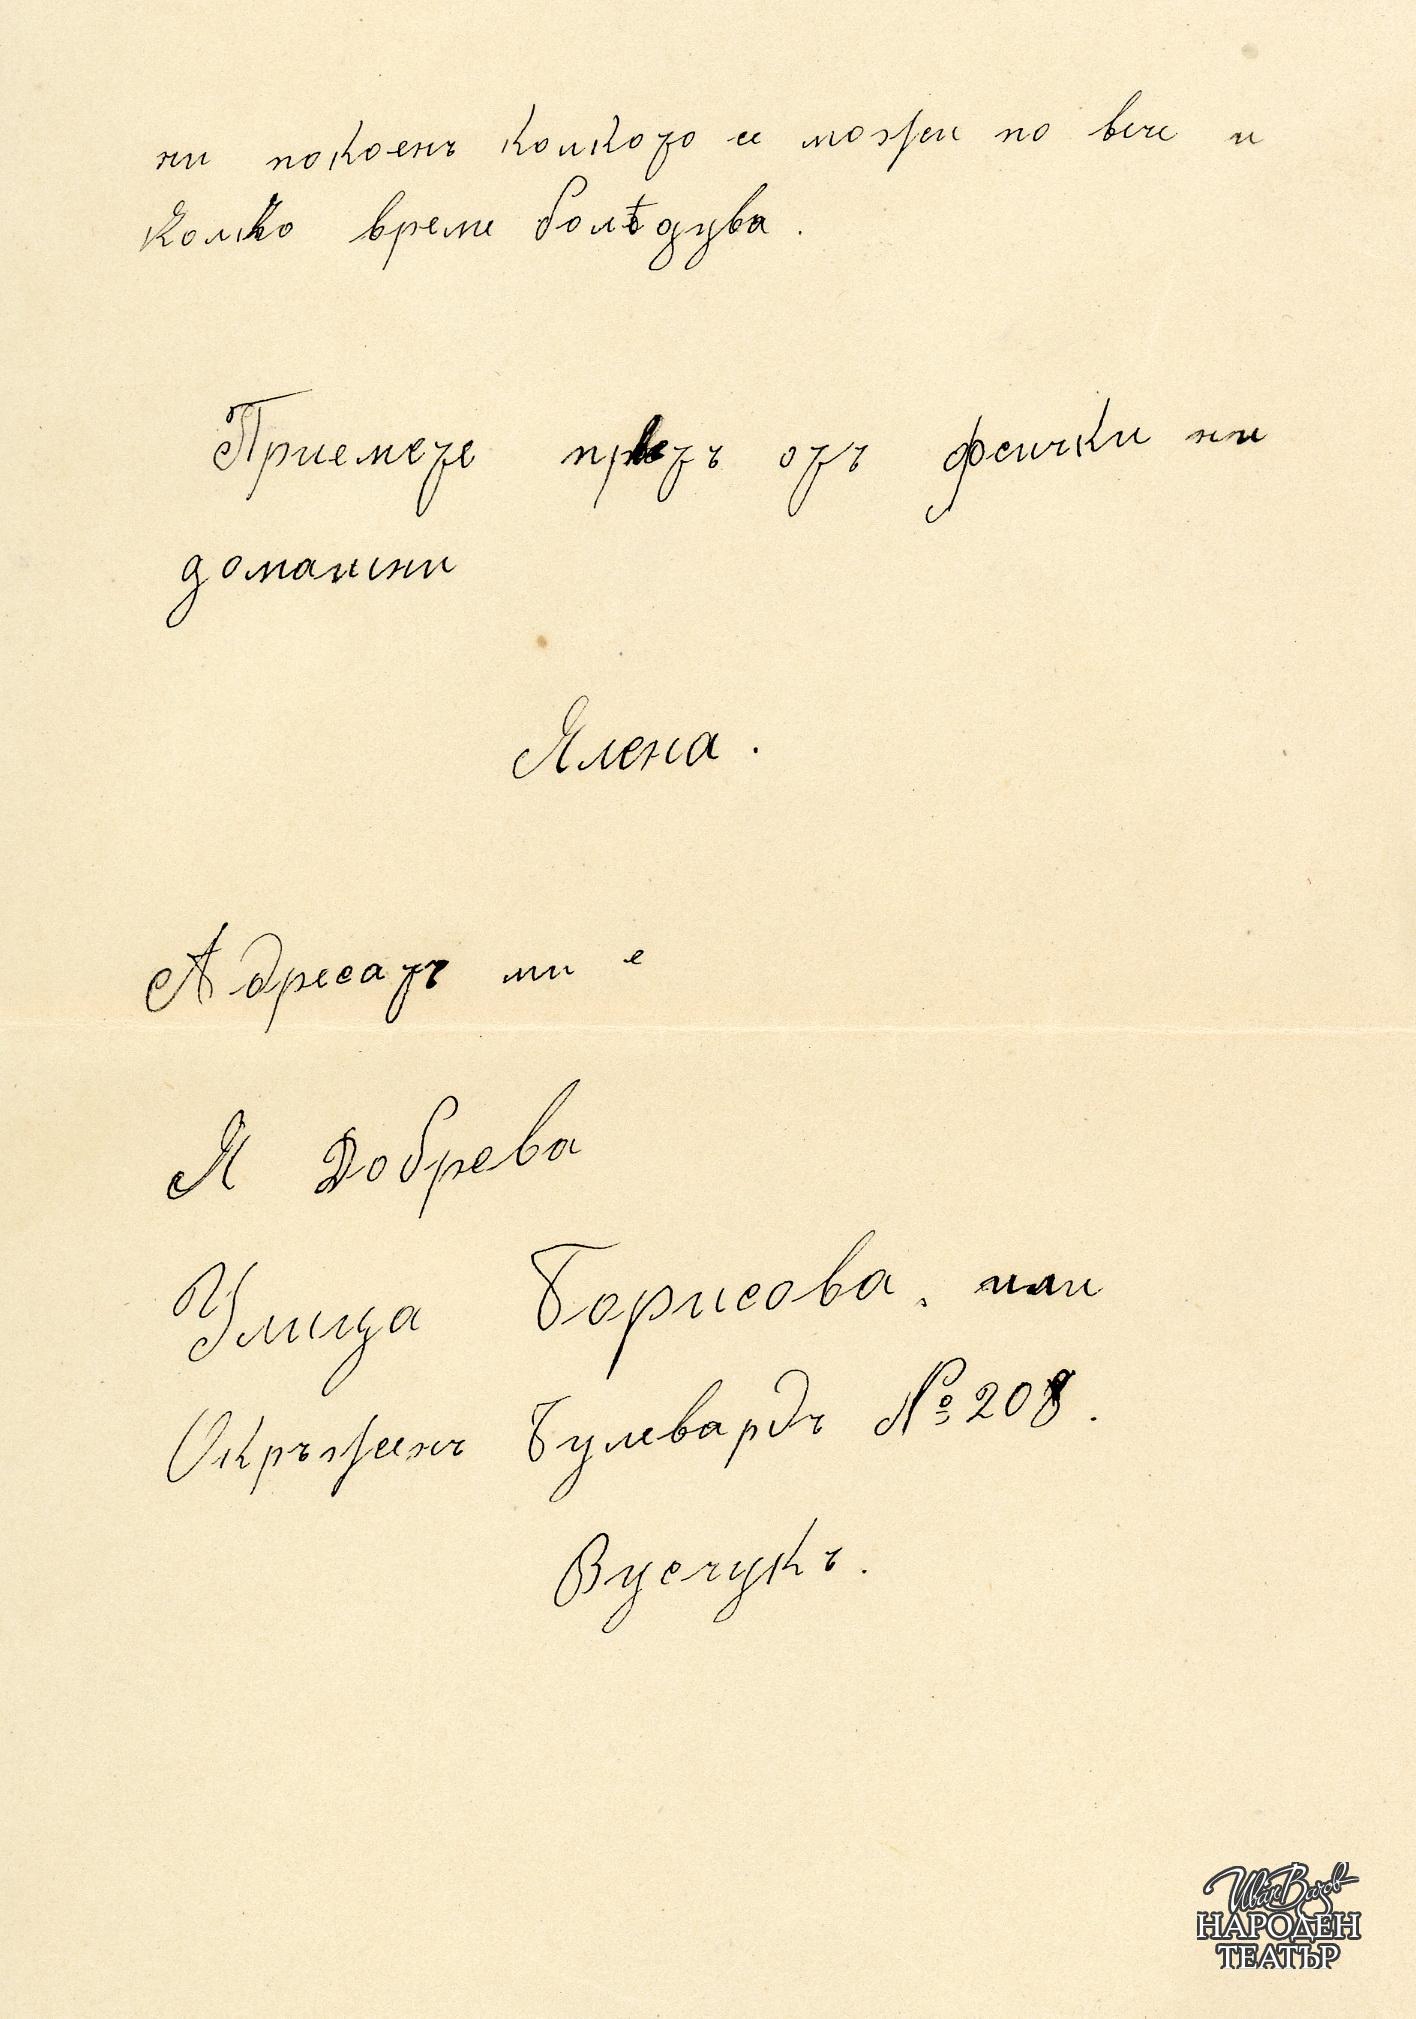 ни покоенъ колкото се можи по вече и
колко време болѣдува.
Приемете от фсички ни
домашни
Ялена.
Адресатъ ми е
Я Добрева
Улица Борисова, или
Окръженъ Булевардъ № 208.
Вусчукъ.
Иван Вазов
НАРОДЕН
ТЕАТЪР